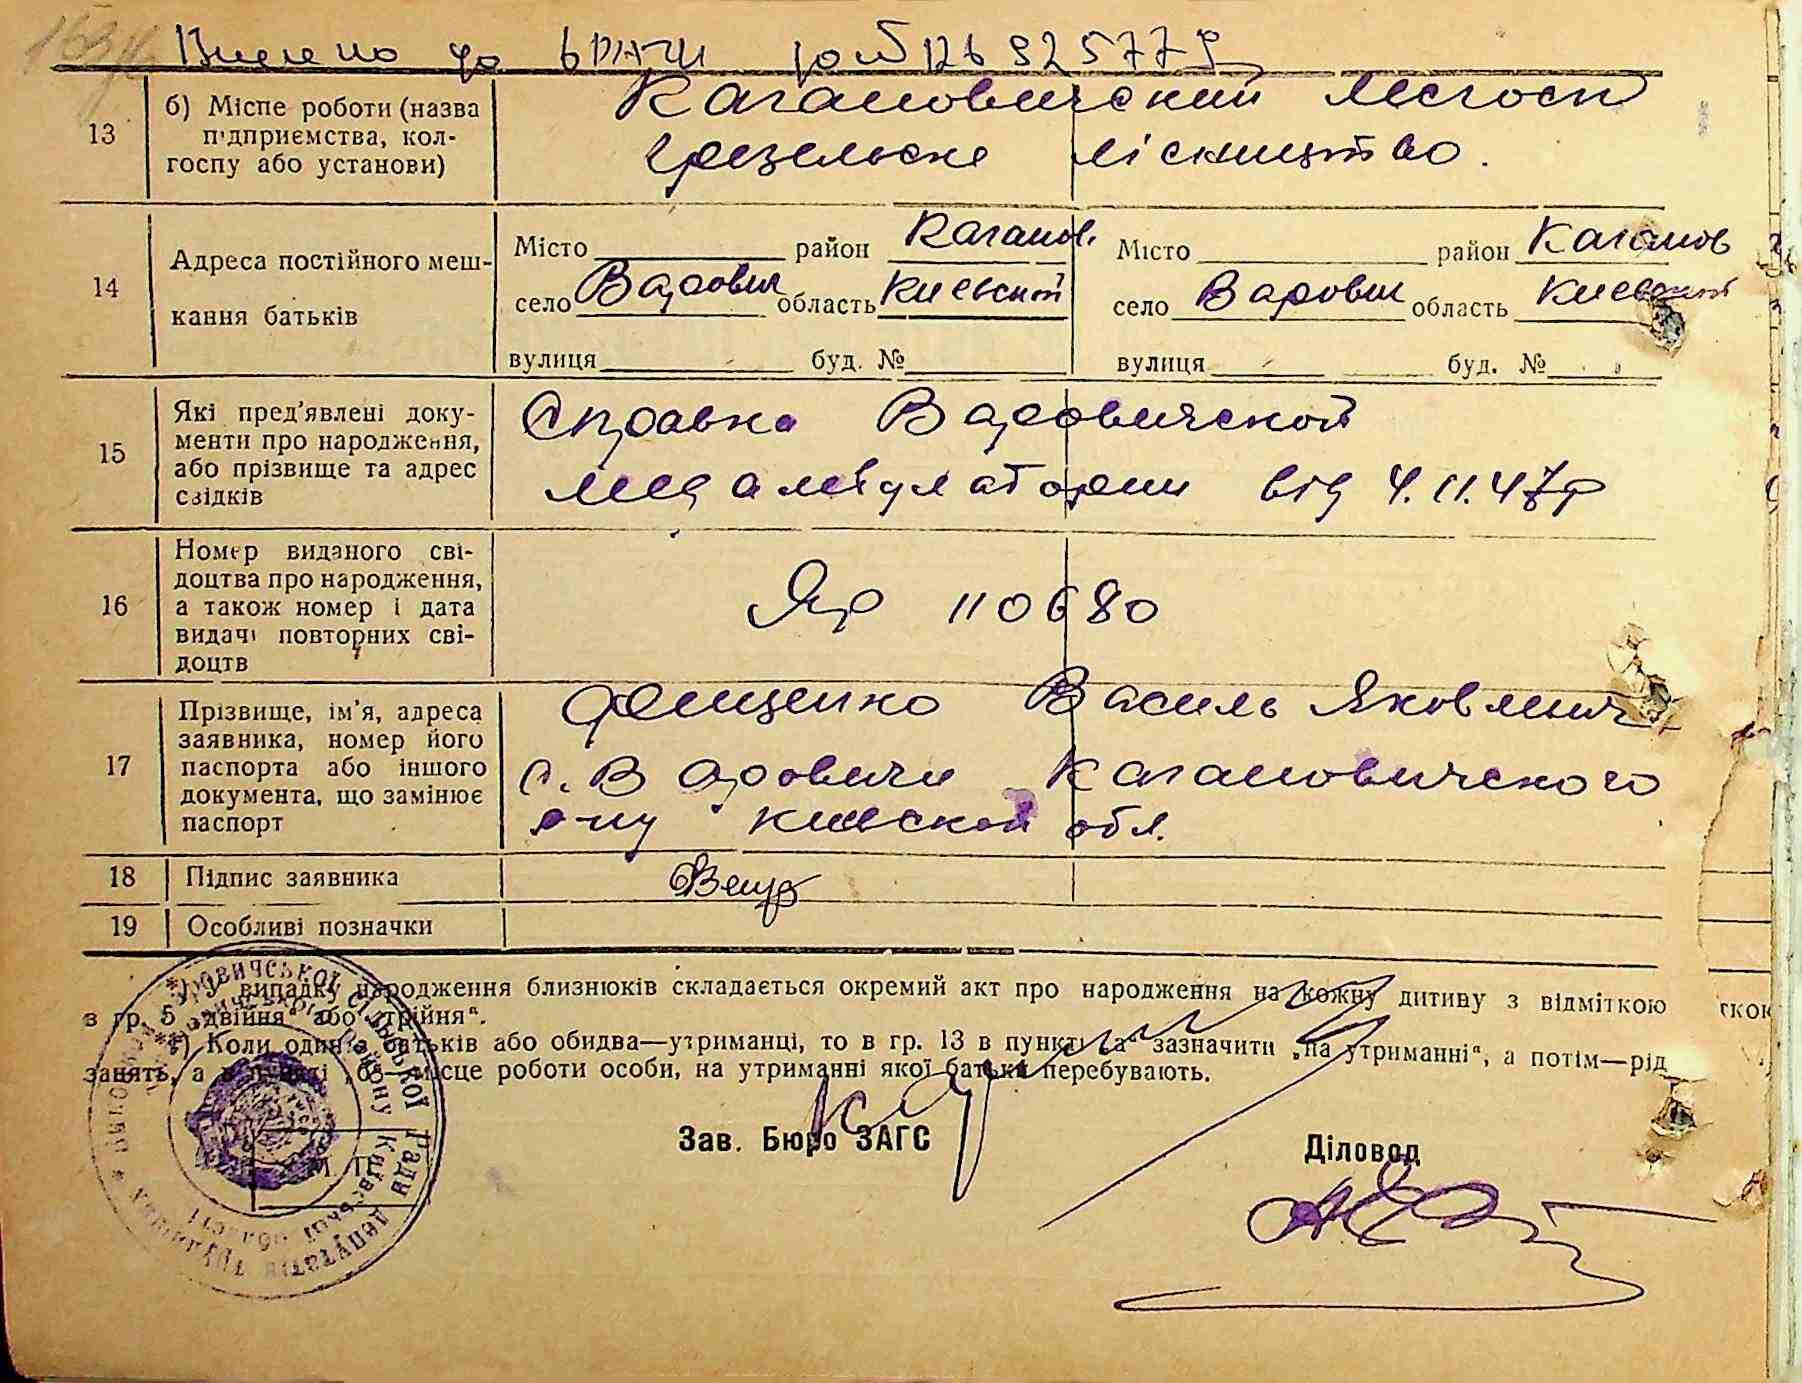 Внесено до ДРАЦС 12692577 9
13 б) Місце роботи (назва підприємства, колгоспу або установи)
Кагановичский лесгосп
лісництво.
14 Адреса постійного мешкання батьків
Місто район Каганов. Місто район Каганов
село Варовичи область Киевской село Варовичи область Киевской
вулиця буд. № вулиця буд. №
15 Які пред'явлені документи про народження, або прізвище та адрес свідків
Справка Варовичской
медамбулатории від 4.11.47р
16 Номер виданого свідоцтва про народження, а також номер і дата видачі повторних свідоцтв
Яр 110680
17 Прізвище, ім'я, адреса заявника, номер його паспорта або іншого документа, що замінює паспорт
Фещенко Василь Яковлевич
с. Варовичи Кагановичского
р-ну киевской обл.
18 Підпис заявника
19 Особливі позначки
*) У випадку народження близнюків складається окремий акт про народження на кожну дитину з відміткою
з гр. 5 „двійня“ або „трійня“.
**) Коли один з батьків або обидва—утриманці, то в гр. 13 в пункті „а“ зазначити „на утриманні“, а потім—рід
занять, а в пункті „б“—місце роботи особи, на утриманні якої батьки перебувають.
Зав. Бюро ЗАГС
Діловод
М. П.